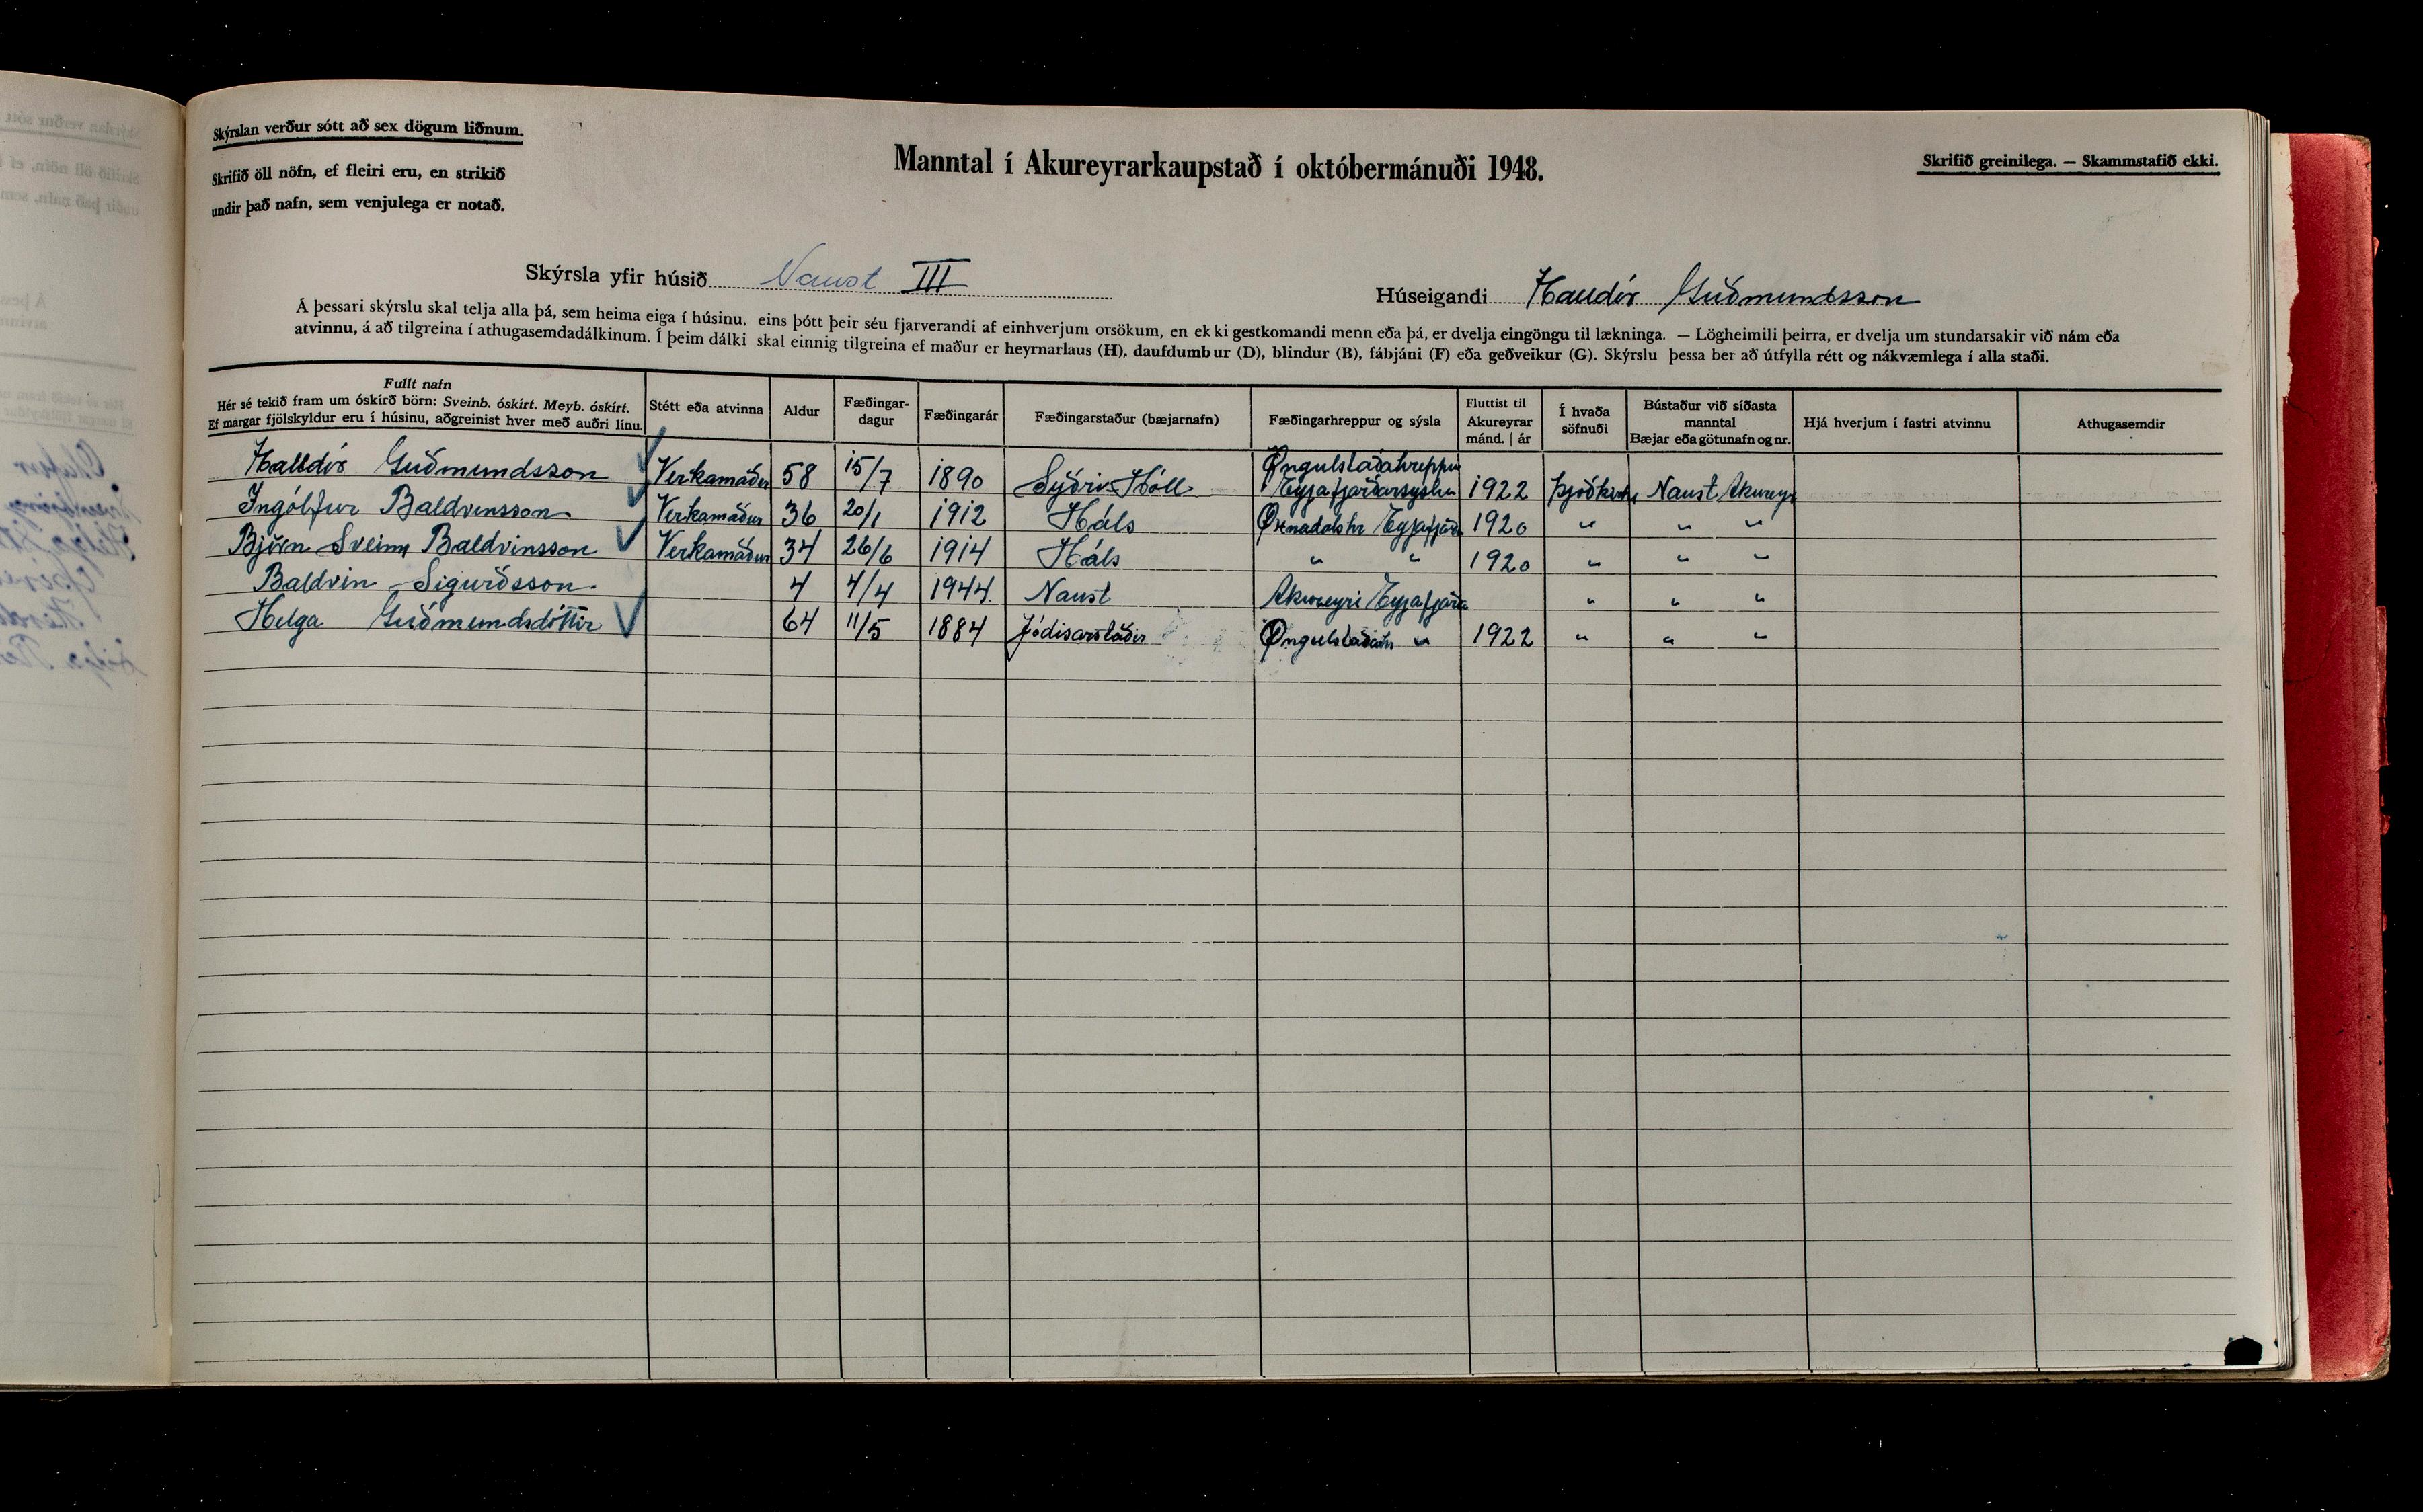 Skýrslan verður sótt að sex dögum liðnum.
Skrifið öll nöfn, ef fleiri eru, en strikið
undir það nafn, sem venjulega er notað.
Manntal í Akureyrarkaupstað í októbermánuði 1948.
Skrifið greinilega. — Skammstafið ekki.
Skýrsla yfir húsið Naust III
Húseigandi Halldór Guðmundsson
Á þessari skýrslu skal telja alla þá, sem heima eiga í húsinu, eins þótt þeir séu fjarverandi af einhverjum orsökum, en ekki gestkomandi menn eða þá, er dvelja eingöngu til lækninga. — Lögheimili þeirra, er dvelja um stundarsakir við nám eða
atvinnu, á að tilgreina í athugasemdadálkinum. Í þeim dálki skal einnig tilgreina ef maður er heyrnarlaus (H), daufdumbur (D), blindur (B), fábjáni (F) eða geðveikur (G). Skýrslu þessa ber að útfylla rétt og nákvæmlega í alla staði.
Fullt nafn
Hér sé tekið fram um óskírð börn: Sveinb. óskírt. Meyb. óskírt.
Ef margar fjölskyldur eru í húsinu, aðgreinist hver með auðri línu.
Stétt eða atvinna
Aldur
Fæðingar-
dagur
Fæðingarár
Fæðingarstaður (bæjarnafn)
Fæðingarhreppur og sýsla
Fluttist til
Akureyrar
mánd. | ár
Í hvaða
söfnuði
Bústaður við síðasta
manntal
Bæjar eða götunafn og nr.
Hjá hverjum í fastri atvinnu
Athugasemdir
Halldór Guðmundsson Verkamaður 58 15/7 1890 Syðri-Hóll Öngulstaðahreppur Eyjafjarðarsýslu 1922 Þjóðkirkj Naust Akureyri
Ingólfur Baldvinsson Verkamaður 36 20/1 1912 Háls Öxnadalshr Eyjafjarð 1920 " " "
Björn Sveinn Baldvinsson Verkamaður 34 26/6 1914 Háls " " 1920 " " "
Baldvin Sigurðsson 4 4/4 1944 Naust Akureyri Eyjafjarð " " "
Helga Guðmundsdóttir 64 11/5 1884 Jódisarstaðir Öngulstaðahr " 1922 " " "